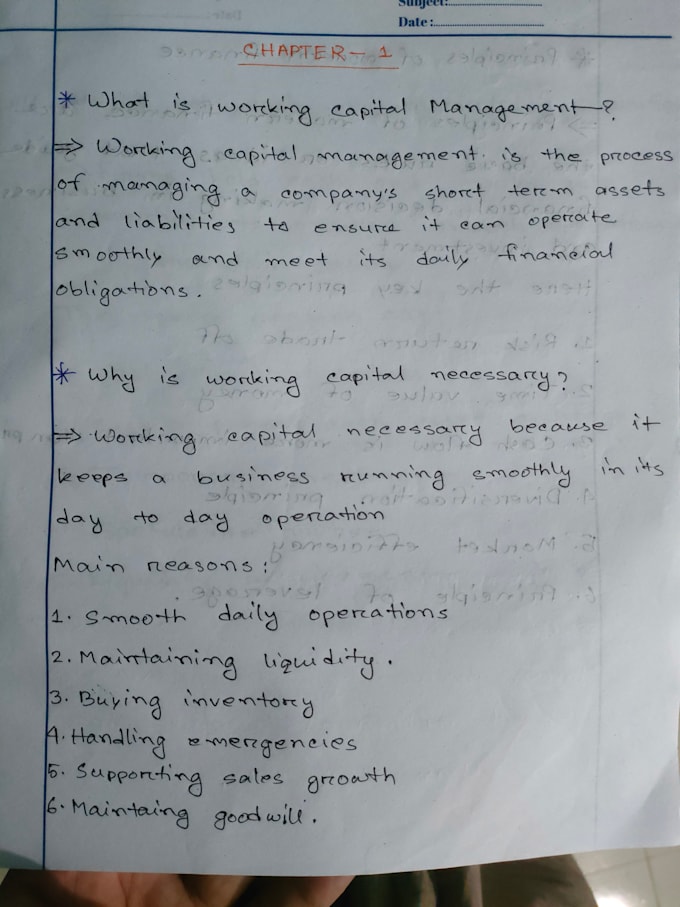 Subject:
Date:
CHAPTER - 1
* What is working capital Management?
⇒ Working capital management is the process
of managing a company's short term assets
and liabilities to ensure it can operate
smoothly and meet its daily financial
obligations.
* Why is working capital necessary?
⇒ Working capital necessary because it
keeps a business running smoothly in its
day to day operation
Main reasons:
1. Smooth daily operations
2. Maintaining liquidity.
3. Buying inventory
4. Handling emergencies
5. Supporting sales growth
6. Maintaing goodwill.